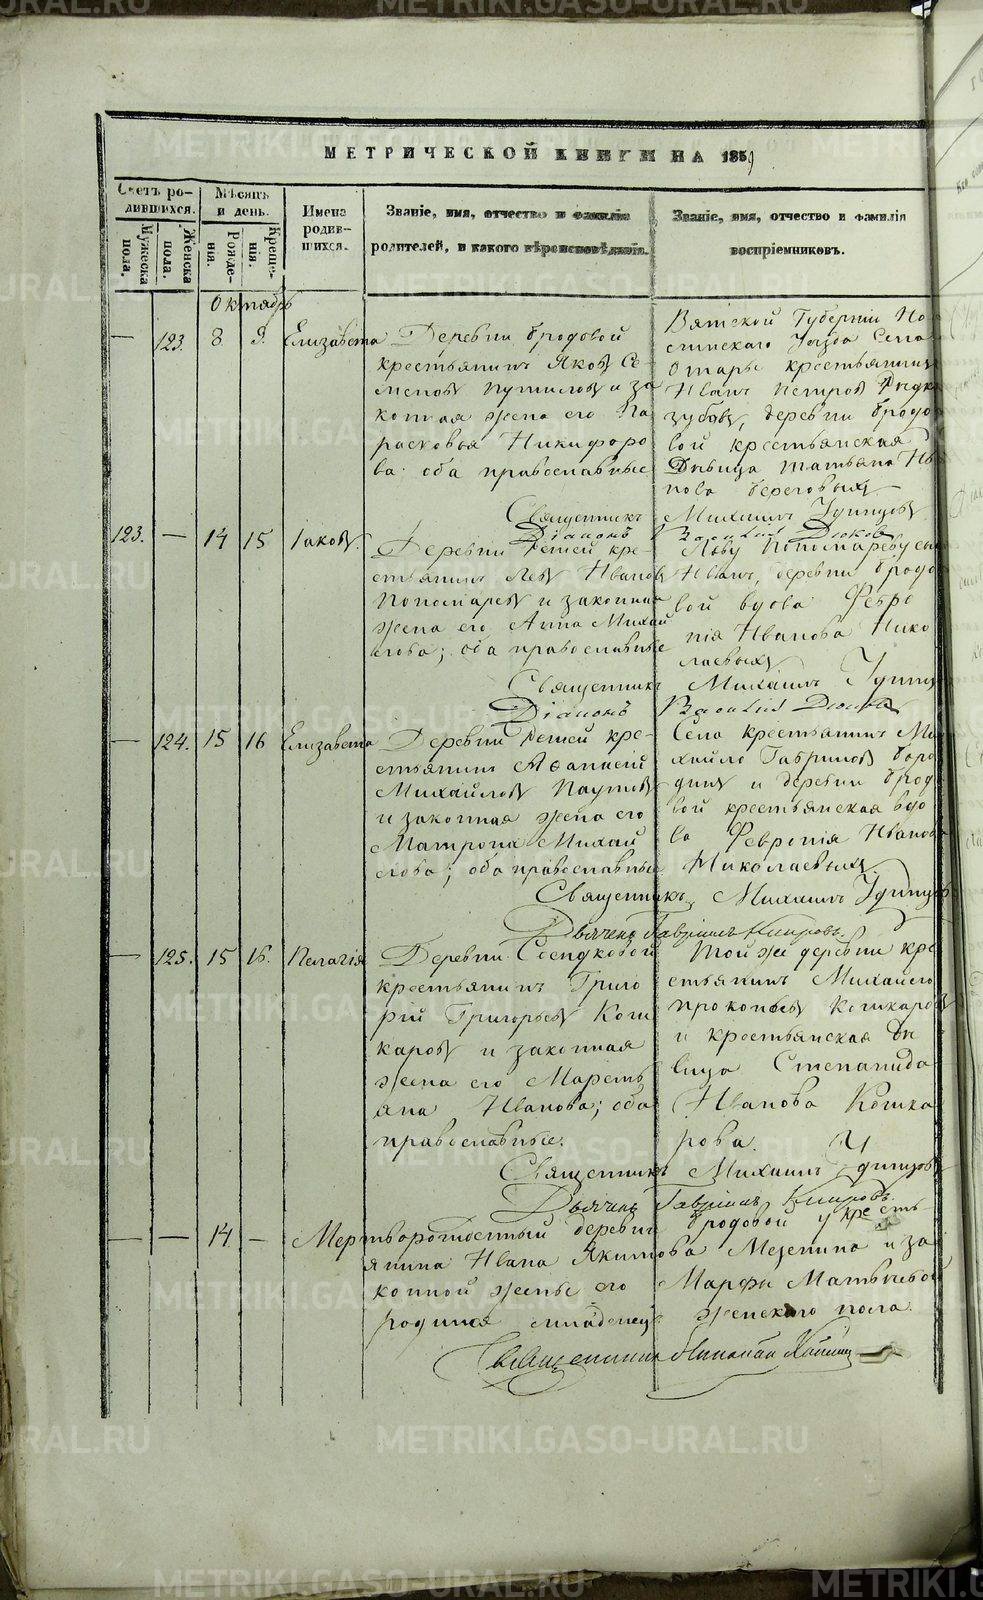 МЕТРИЧЕСКОЙ КНИГИ НА 1859
Счетъ ро-
дившихся.
Мужеска
пола.
Женска
пола.
Мѣсяцъ
и день.
Рожде-
нія.
Креще-
нія.
Имена
родив-
шихся.
Званіе, имя, отчество и фамилія
родителей, и какого вѣроисповѣданія.
Званіе, имя, отчество и фамилія
воспріемниковъ.
Октябрь
— 123. 8 9. Елизавета
Деревни Бродовой
крестьянинъ Яковъ Се
меновъ Путиловъ и за
конная жена его Па
расковья Никифоро
ва оба православные
Вятской Губерніи
Уѣзда Села
крестьянинъ
Иванъ Петровъ
зубовъ, деревни Бродо
вой крестьянская
Дѣвица Татьяна Ива
нова Береговыхъ
Священникъ Михаилъ Удинцовъ
Діаконъ Василій Дюковъ
123. — 14 15 Іаковъ.
Деревни кре-
стьянинъ Левъ Ивановъ
Пономаревъ и законная
жена его Анна Михай
лова; оба православные
Льву Пономареву сынъ
Иванъ, деревни Бродо
вой вдова Февро
нія Иванова Нико
лаевыхъ
Священникъ Михаилъ Удинцовъ
Діаконъ Василій Дюковъ
— 124. 15 16 Елизавета
Деревни кре-
стьянинъ Афанасій
Михайловъ Паутовъ
и законная жена его
Матрона Михай
лова; оба православные
Села крестьянинъ Ми
хайло Гавриловъ Боро
динъ и деревни Бродо
вой крестьянская вдо
ва Февронія Иванова
Николаевыхъ
Священникъ Михаилъ Удинцовъ
Дьячекъ Гавріилъ Кыировъ.
— 125. 15 16. Пелагія
Деревни
крестьянинъ Григо
рій Григорьевъ Кош
каровъ и законная
жена его Марѳть
яна Иванова; оба
православные.
Той же деревни кре
стьянинъ Михайло
Прокопьевъ Кошкаровъ
и крестьянская дѣ
вица Степанида
Иванова Кошка
рова
Священникъ Михаилъ Удинцовъ
Дьячекъ Гавріилъ
— — 14 — Мертворожденный деревни Бродовой у кресть-
янина Ивана Якимова Мезенина и за
конной жены его Марфы Матвѣевой
родился младенецъ женскаго пола.
Священникъ Николай